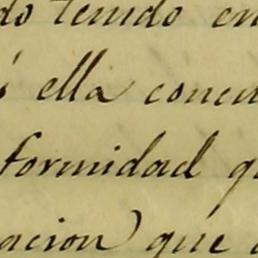 do tenido en
ó ella concu
formidad q
acion que